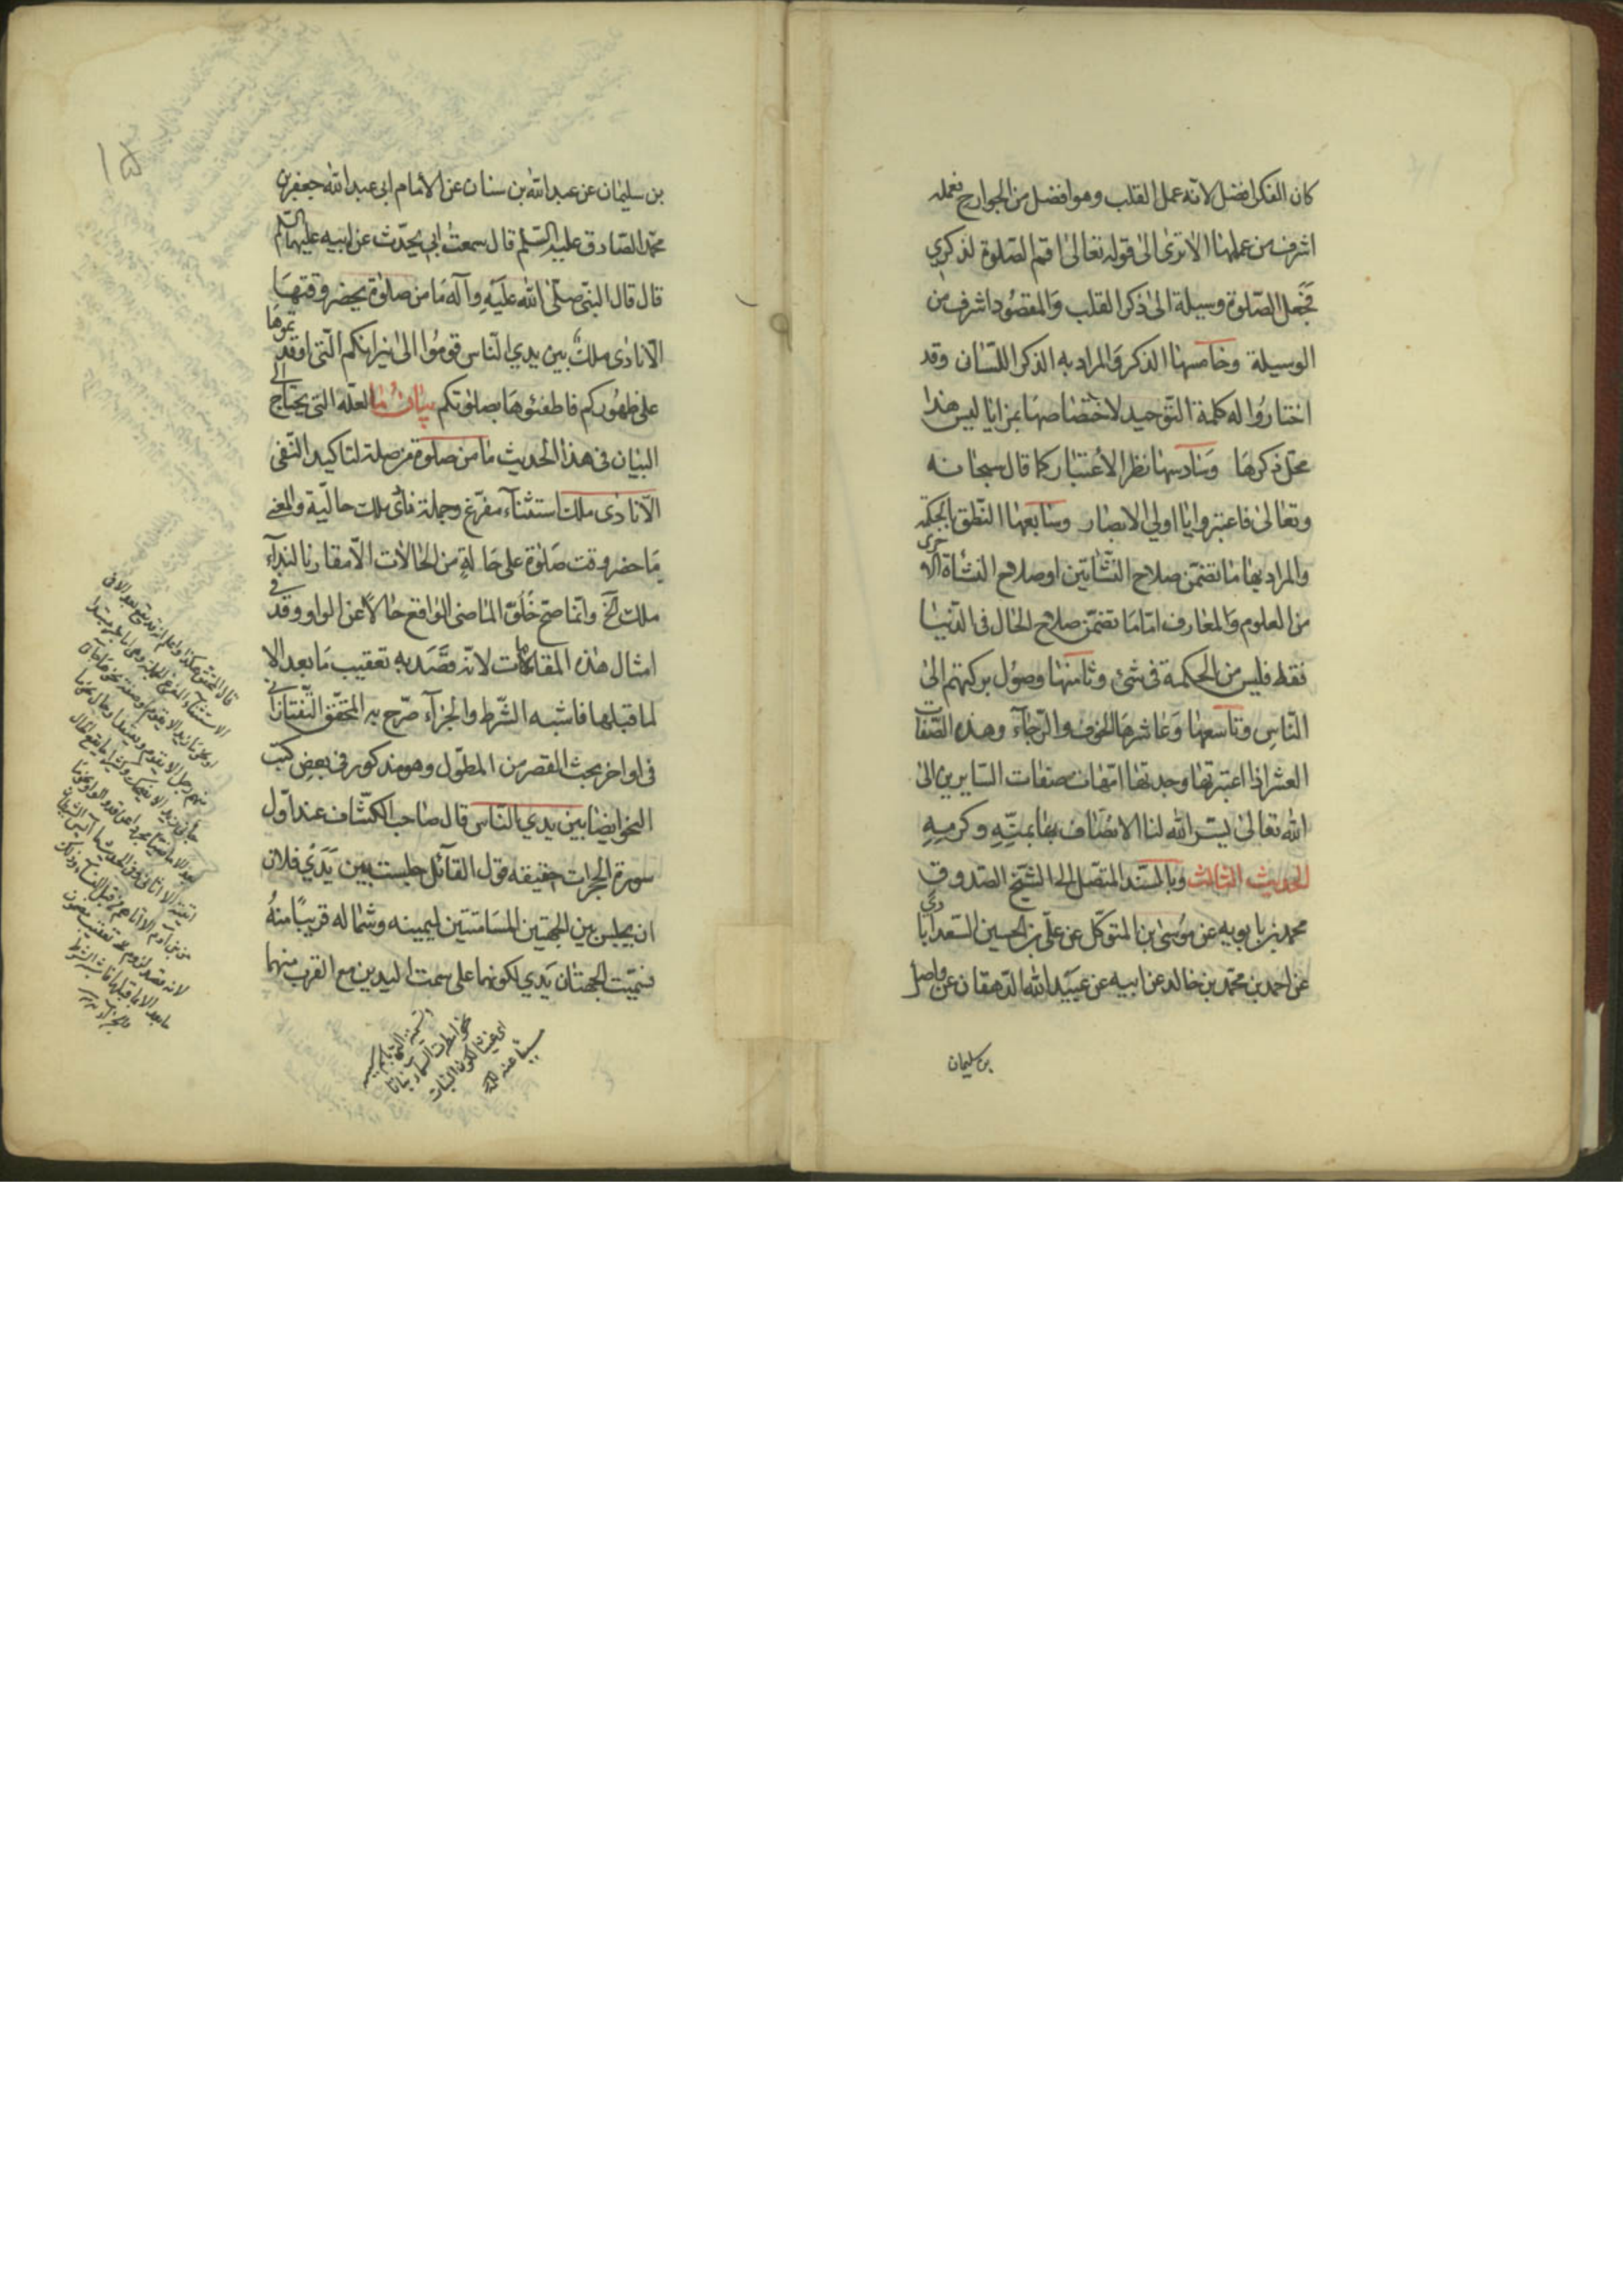 كان الفكر افضل لانه عمل القلب وهو افضل من الجوارح فعمله
اشرف من عملها الا ترى الى قوله تعالى اقم الصلوة لذكري
فجعل الصلوة وسيلة الى ذكر القلب والمقصود اشرف من
الوسيلة وخامسها الذكر والمراد به الذكر اللساني وقد
اختاروا له كلمة التوحيد لاختصاصها بمزايا ليس هذا
محل ذكرها وسادسها نظر الاعتبار كما قال سبحانه
وتعالى فاعتبروا يا اولي الابصار وسابعها النطق بالحكمة
والمراد بها ما تضمن صلاح النشاتين او صلاح النشاة الاخرى
من العلوم والمعارف اما ما تضمن صلاح الحال في الدنيا
فقط فليس من الحكمة في شئ وثامنها وصول بركتهم الى
الناس وتاسعها وعاشرها الخوف والرجاء وهذه الصفات
العشر اذا اعتبرتها وجدتها امهات صفات السايرين الى
الله تعالى يسر الله لنا الاتصاف بها بمنه وكرمه
الحديث الثالث وبالسند المتصل الى الشيخ الصدوق
محمد بن بابويه عن موسى بن المتوكل عن علي بن الحسين السعدابادي
عن احمد بن محمد بن خالد عن ابيه عن عبيد الله الدهقان عن واصل
بن سليمان
١٥
بن سليمان عن عبد الله بن سنان عن الامام ابي عبد الله جعفر بن
محمد الصادق عليه السلم قال سمعت ابي يحدث عن ابيه عليهما السلم
قال قال النبي صلى الله عليه وآله ما من صلوة يحضر وقتها
الا نادى ملك بين يدي الناس قوموا الى نيرانكم التي اوقدتموها
على ظهوركم فاطفئوها بصلوتكم بيان ما لعله التي يحتاج الى
البيان في هذا الحديث ما من صلوة من صلة لتاكيد النفي
الا نادى ملك استثناء مفرغ وجملة نادى ملك حالية والمعنى
ما حضر وقت صلوة على حالة من الحالات الا مقارنا لنداء
ملك آلخ وانما صح خلو الماضي الواقع حالا عن الواو وقد في
امثال هذه المقامات لانه قصد به تعقيب ما بعد الا
لما قبلها فاشبه الشرط والجزاء صرح به المحقق التفتازاني
في اواخر بحث القصر من المطول وهو مذكور في بعض كتب
النحو ايضا بين يدي الناس قال صاحب الكشاف عند اول
سورة الحجرات حقيقة قول القائل جلست بين يدي فلان
ان يجلس بين الجهتين المسامتتين ليمينه وشماله قريبا منه
فسميت الجهتان يدي لكونهما على سمت اليدين مع القرب منهما